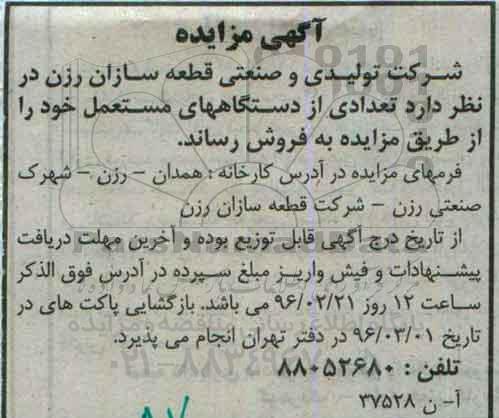 آگهی مزایده
شرکت تولیدی و صنعتی قطعه سازان رزن در
نظر دارد تعدادی از دستگاههای مستعمل خود را
از طریق مزایده به فروش رساند.
فرمهای مزایده در آدرس کارخانه : همدان – رزن – شهرک
صنعتی رزن – شرکت قطعه سازان رزن
از تاریخ درج آگهی قابل توزیع بوده و آخرین مهلت دریافت
پیشنهادات و فیش واریز مبلغ سپرده در آدرس فوق الذکر
ساعت ۱۲ روز ۹۶/۰۲/۲۱ می باشد. بازگشایی پاکت های در
تاریخ ۹۶/۰۳/۰۱ در دفتر تهران انجام می پذیرد.
تلفن : ۸۸۰۵۲۶۸۰
آ- ن ۳۷۵۲۸